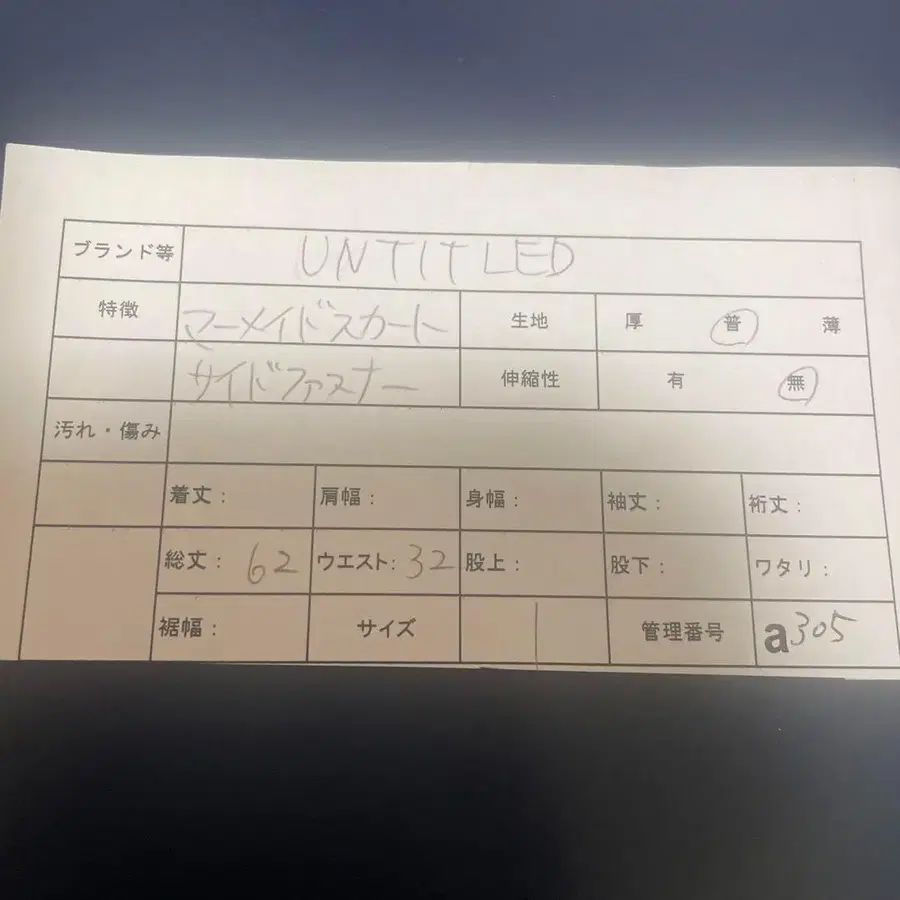 ブランド等 UNTITLED
特徴 マーメイドスカート 生地 厚 普 薄
サイドファスナー 伸縮性 有 無
汚れ・傷み
着丈： 肩幅： 身幅： 袖丈： 裄丈：
総丈：62 ウエスト：32 股上： 股下： ワタリ：
裾幅： サイズ 1 管理番号 a305